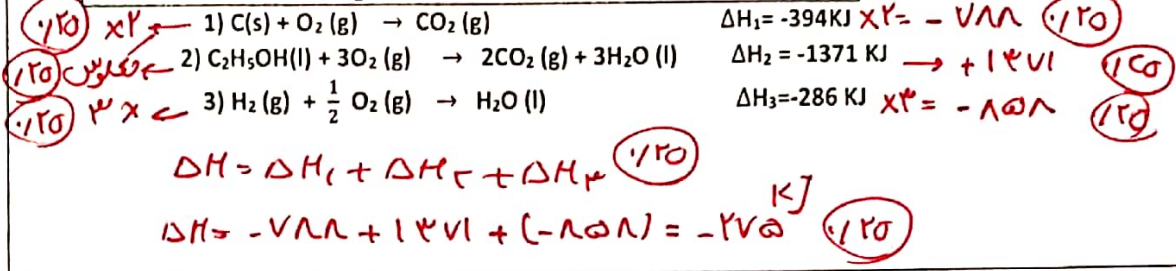 (۰/۲۵) ×۲ ← 1) C(s) + O₂ (g) → CO₂ (g) ΔH₁= -394KJ ×۲= - ۷۸۸ (۰/۲۵)
(۰/۲۵) معکوس ← 2) C₂H₅OH(l) + 3O₂ (g) → 2CO₂ (g) + 3H₂O (l) ΔH₂ = -1371 KJ → + ۱۳۷۱ (۰/۲۵)
(۰/۲۵) ۳ × ← 3) H₂ (g) + 1/2 O₂ (g) → H₂O (l) ΔH₃=-286 KJ ×۳= - ۸۵۸ (۰/۲۵)
ΔH = ΔH₁ + ΔH₂ + ΔH₃ (۰/۲۵)
ΔH= -۷۸۸ + ۱۳۷۱ + (-۸۵۸) = -۲۷۵ KJ (۰/۲۵)